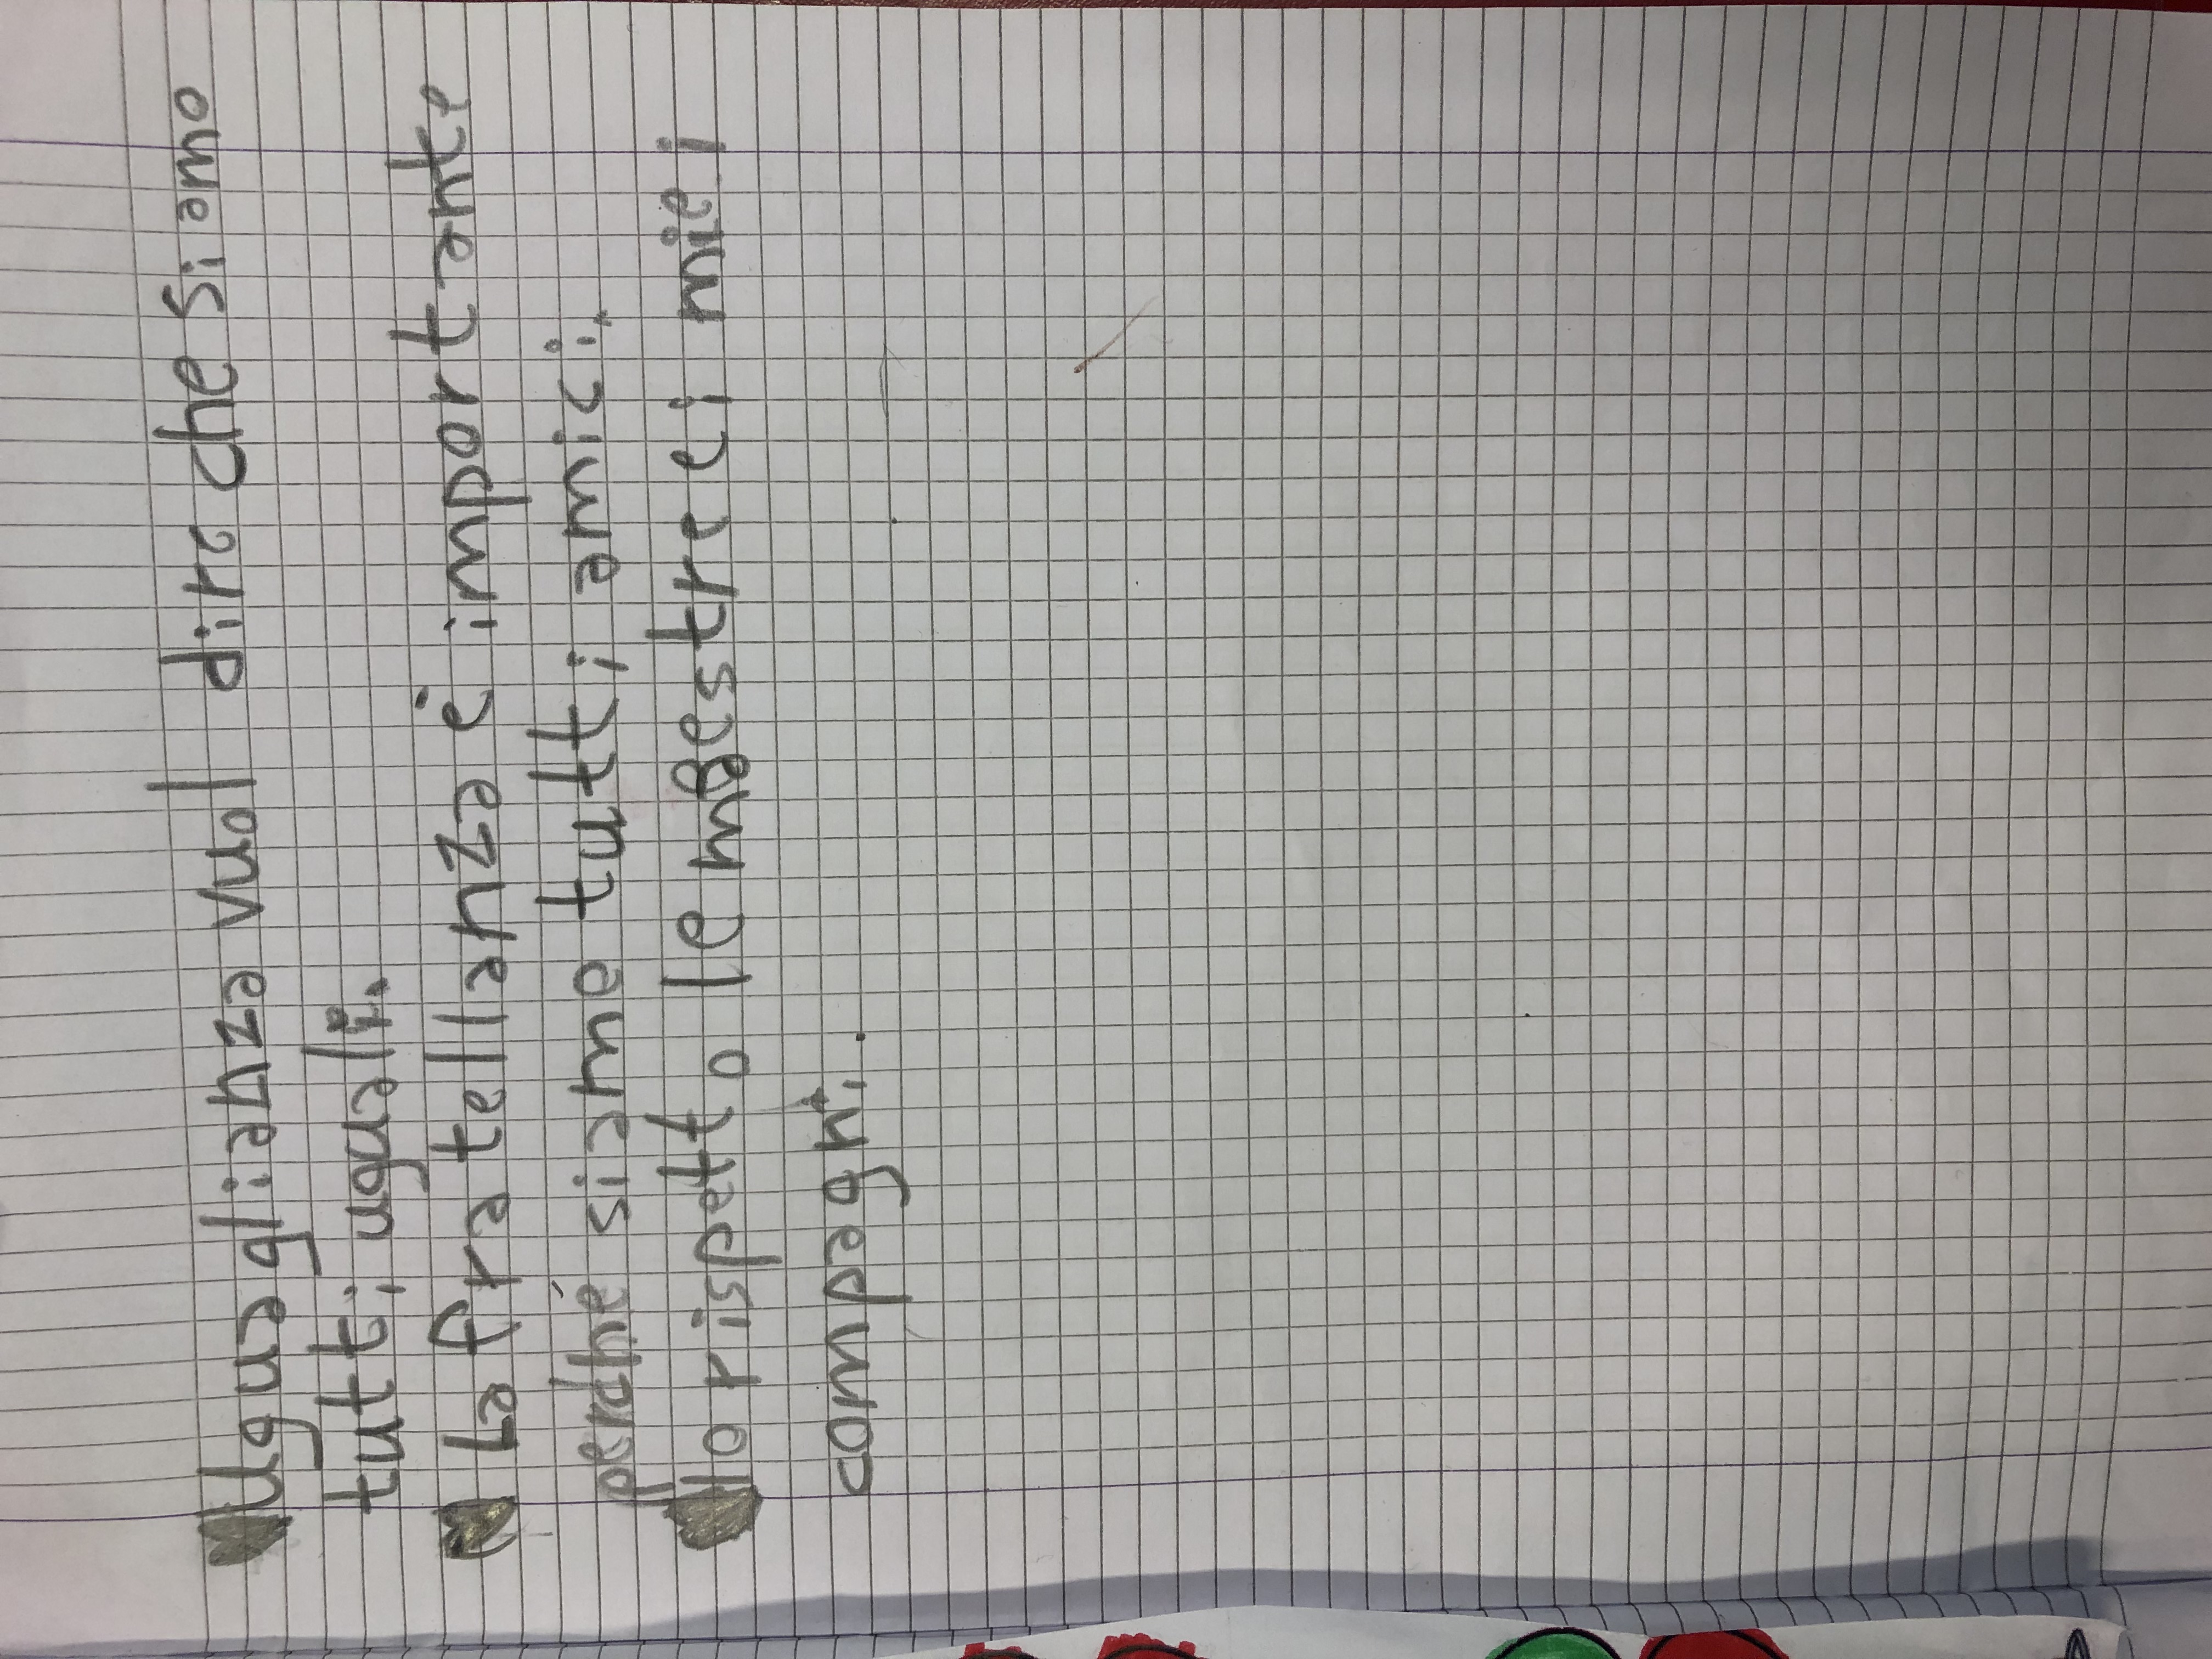 Uguaglianza vuol dire che siamo
tutti uguali.
La fratellanza è importante
perché siamo tutti amici.
Io rispetto le maestre i miei
compagni.